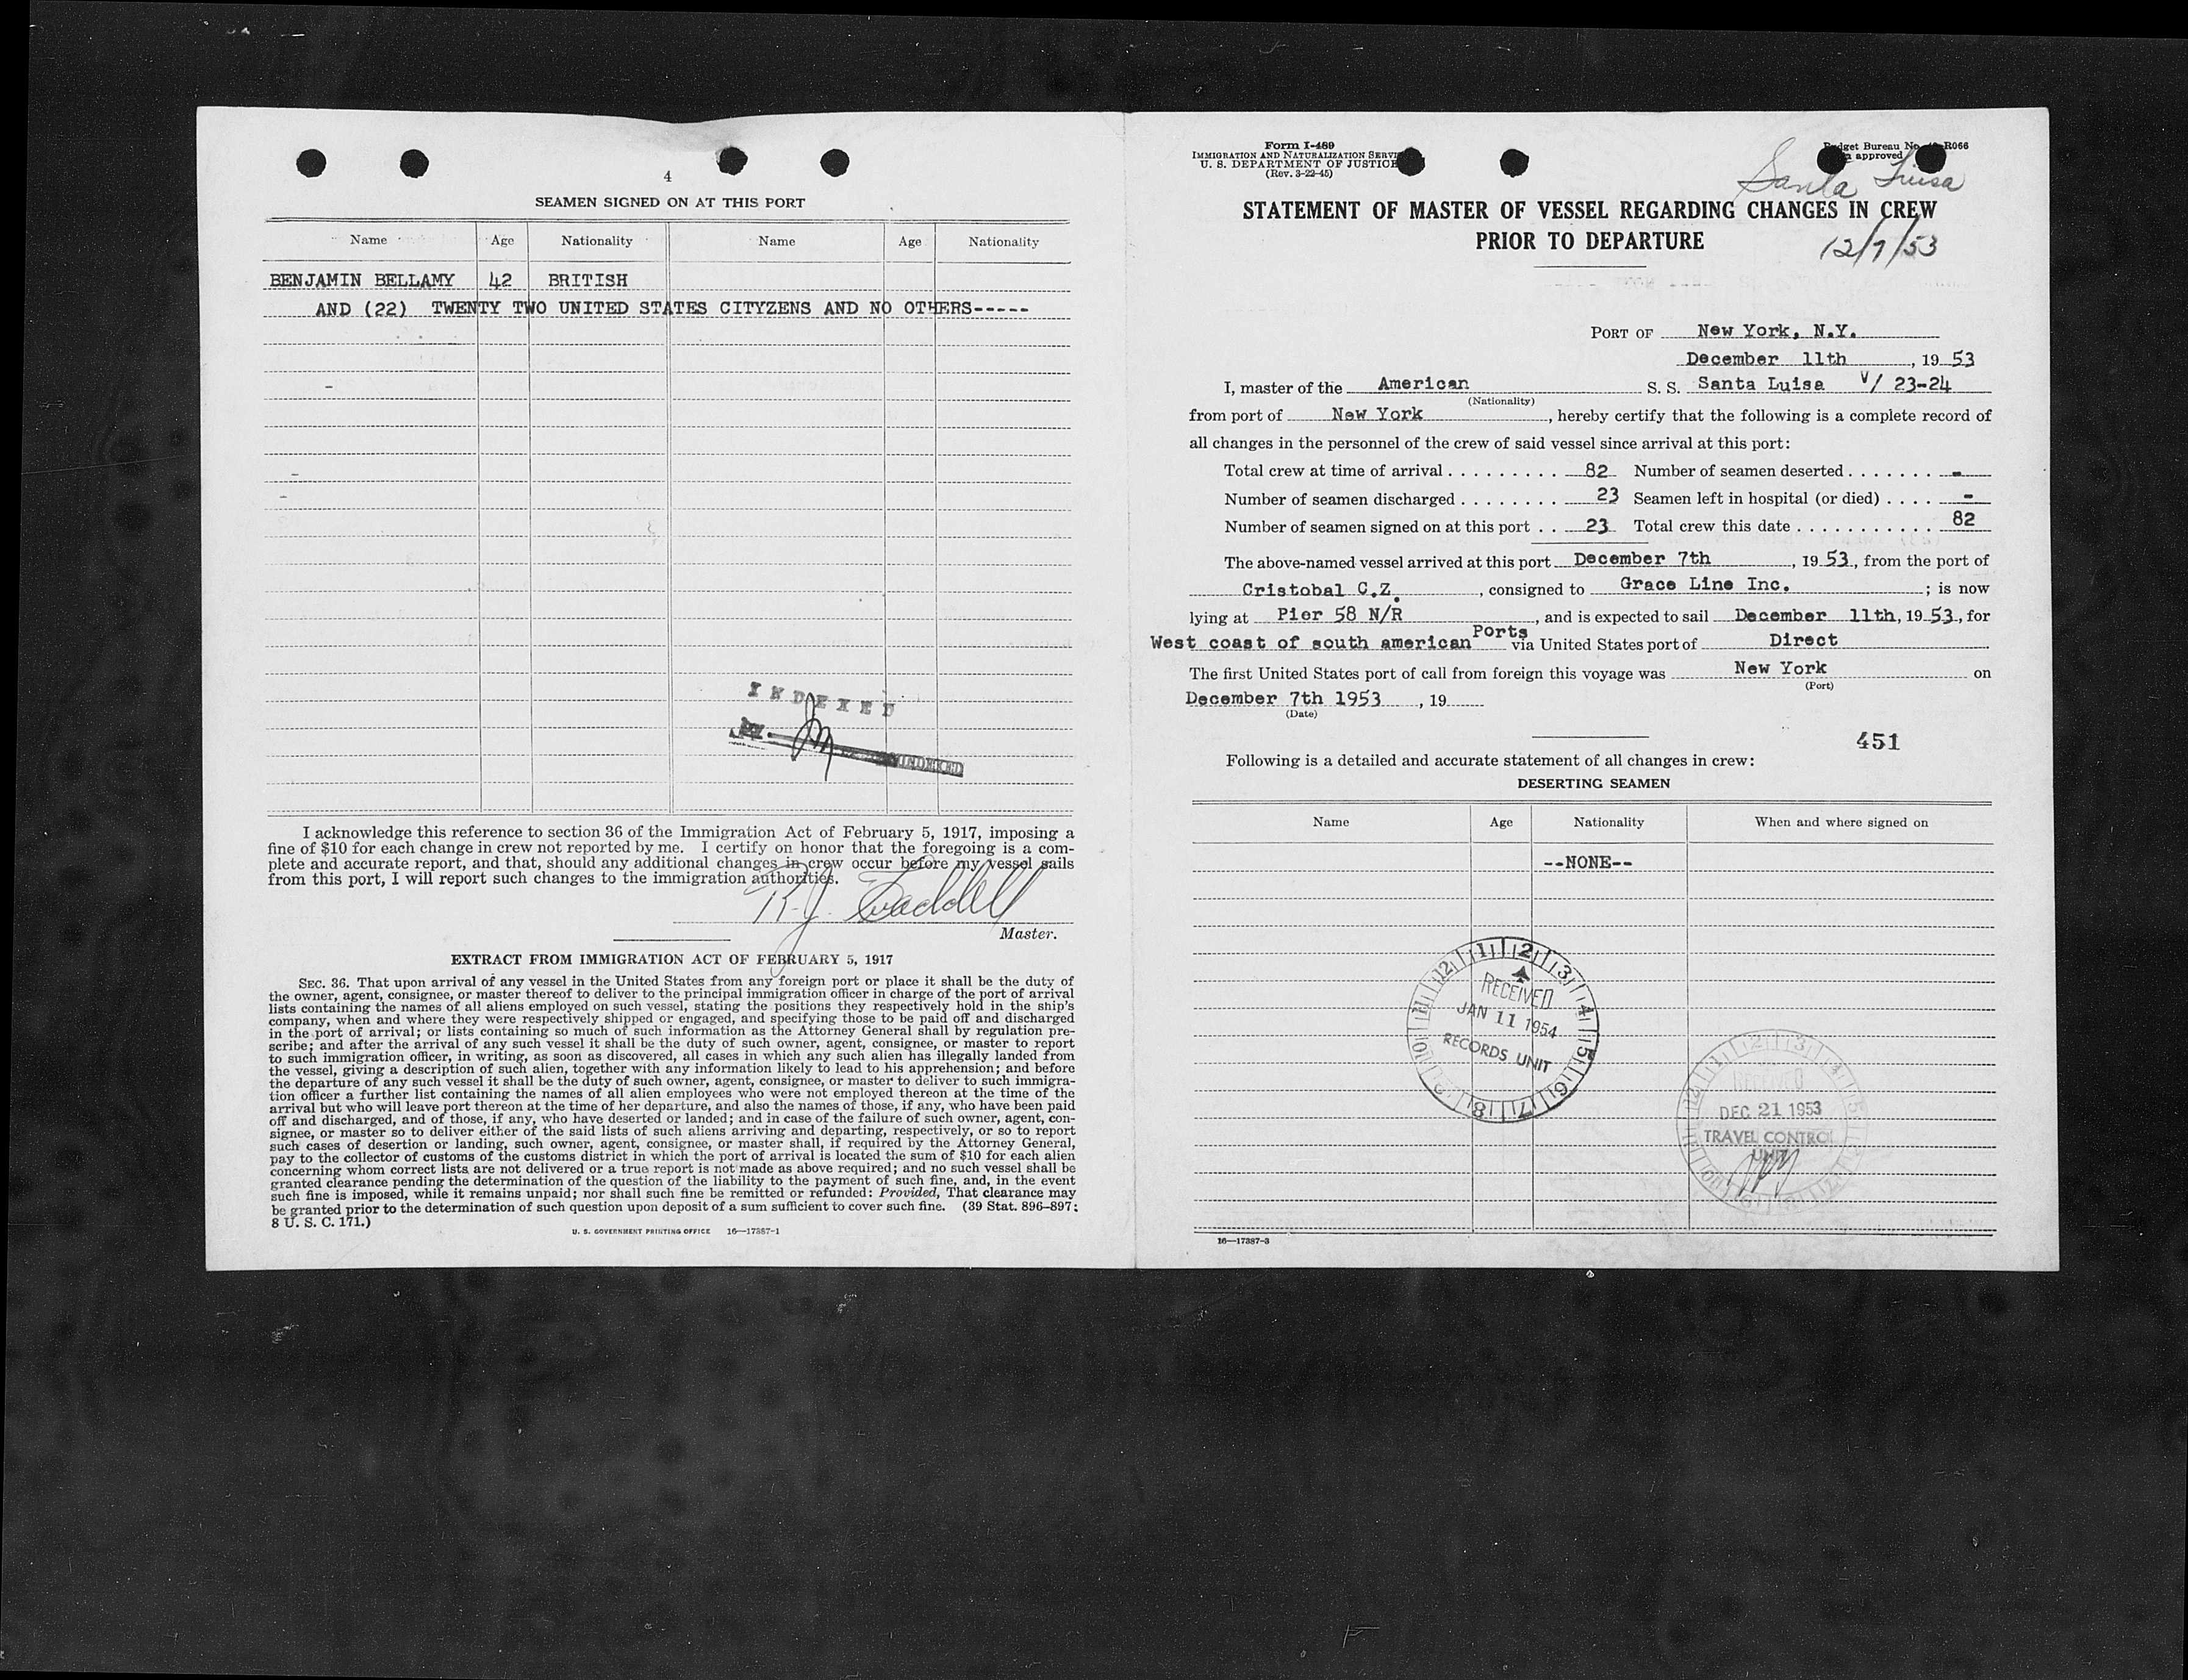 4
SEAMEN SIGNED ON AT THIS PORT
Name Age Nationality Name Age Nationality
BENJAMIN BELLAMY 42 BRITISH
AND (22) TWENTY TWO UNITED STATES CITYZENS AND NO OTHERS-----
INDEXED
I acknowledge this reference to section 36 of the Immigration Act of February 5, 1917, imposing a
fine of $10 for each change in crew not reported by me. I certify on honor that the foregoing is a com-
plete and accurate report, and that, should any additional changes in crew occur before my vessel sails
from this port, I will report such changes to the immigration authorities.
R.J. Waddell
Master.
EXTRACT FROM IMMIGRATION ACT OF FEBRUARY 5, 1917
SEC. 36. That upon arrival of any vessel in the United States from any foreign port or place it shall be the duty of
the owner, agent, consignee, or master thereof to deliver to the principal immigration officer in charge of the port of arrival
lists containing the names of all aliens employed on such vessel, stating the positions they respectively hold in the ship's
company, when and where they were respectively shipped or engaged, and specifying those to be paid off and discharged
in the port of arrival; or lists containing so much of such information as the Attorney General shall by regulation pre-
scribe; and after the arrival of any such vessel it shall be the duty of such owner, agent, consignee, or master to report
to such immigration officer, in writing, as soon as discovered, all cases in which any such alien has illegally landed from
the vessel, giving a description of such alien, together with any information likely to lead to his apprehension; and before
the departure of any such vessel it shall be the duty of such owner, agent, consignee, or master to deliver to such immigra-
tion officer a further list containing the names of all alien employees who were not employed thereon at the time of the
arrival but who will leave port thereon at the time of her departure, and also the names of those, if any, who have been paid
off and discharged, and of those, if any, who have deserted or landed; and in case of the failure of such owner, agent, con-
signee, or master so to deliver either of the said lists of such aliens arriving and departing, respectively, or so to report
such cases of desertion or landing, such owner, agent, consignee, or master shall, if required by the Attorney General,
pay to the collector of customs of the customs district in which the port of arrival is located the sum of $10 for each alien
concerning whom correct lists are not delivered or a true report is not made as above required; and no such vessel shall be
granted clearance pending the determination of the question of the liability to the payment of such fine, and, in the event
such fine is imposed, while it remains unpaid; nor shall such fine be remitted or refunded: Provided, That clearance may
be granted prior to the determination of such question upon deposit of a sum sufficient to cover such fine. (39 Stat. 896-897;
8 U. S. C. 171.)
U. S. GOVERNMENT PRINTING OFFICE 16—17387-1
Form I-489
IMMIGRATION AND NATURALIZATION SERVI
U. S. DEPARTMENT OF JUSTICE
(Rev. 3-22-45)
Budget Bureau No. R066
approved
Santa Luisa
STATEMENT OF MASTER OF VESSEL REGARDING CHANGES IN CREW
PRIOR TO DEPARTURE
12/7/53
PORT OF New York, N.Y.
December 11th, 19 53
I, master of the American S. S. Santa Luisa V/ 23-24
(Nationality)
from port of New York, hereby certify that the following is a complete record of
all changes in the personnel of the crew of said vessel since arrival at this port:
Total crew at time of arrival . . . . . . . . . 82 Number of seamen deserted . . . . . . . -
Number of seamen discharged . . . . . . . . 23 Seamen left in hospital (or died) . . . . -
Number of seamen signed on at this port . . 23 Total crew this date . . . . . . . . . . . 82
The above-named vessel arrived at this port December 7th, 19 53, from the port of
Cristobal C.Z., consigned to Grace Line Inc.; is now
lying at Pier 58 N/R, and is expected to sail December 11th, 19 53, for
West coast of south american Ports via United States port of Direct
The first United States port of call from foreign this voyage was New York on
(Port)
December 7th 1953, 19
(Date)
451
Following is a detailed and accurate statement of all changes in crew:
DESERTING SEAMEN
Name Age Nationality When and where signed on
--NONE--
12 1 2 3 4 5 6 7 8 9 10 11
RECEIVED
JAN 11 1954
RECORDS UNIT
RECEIVED
DEC 21 1953
TRAVEL CONTROL
UNIT
16—17387-3